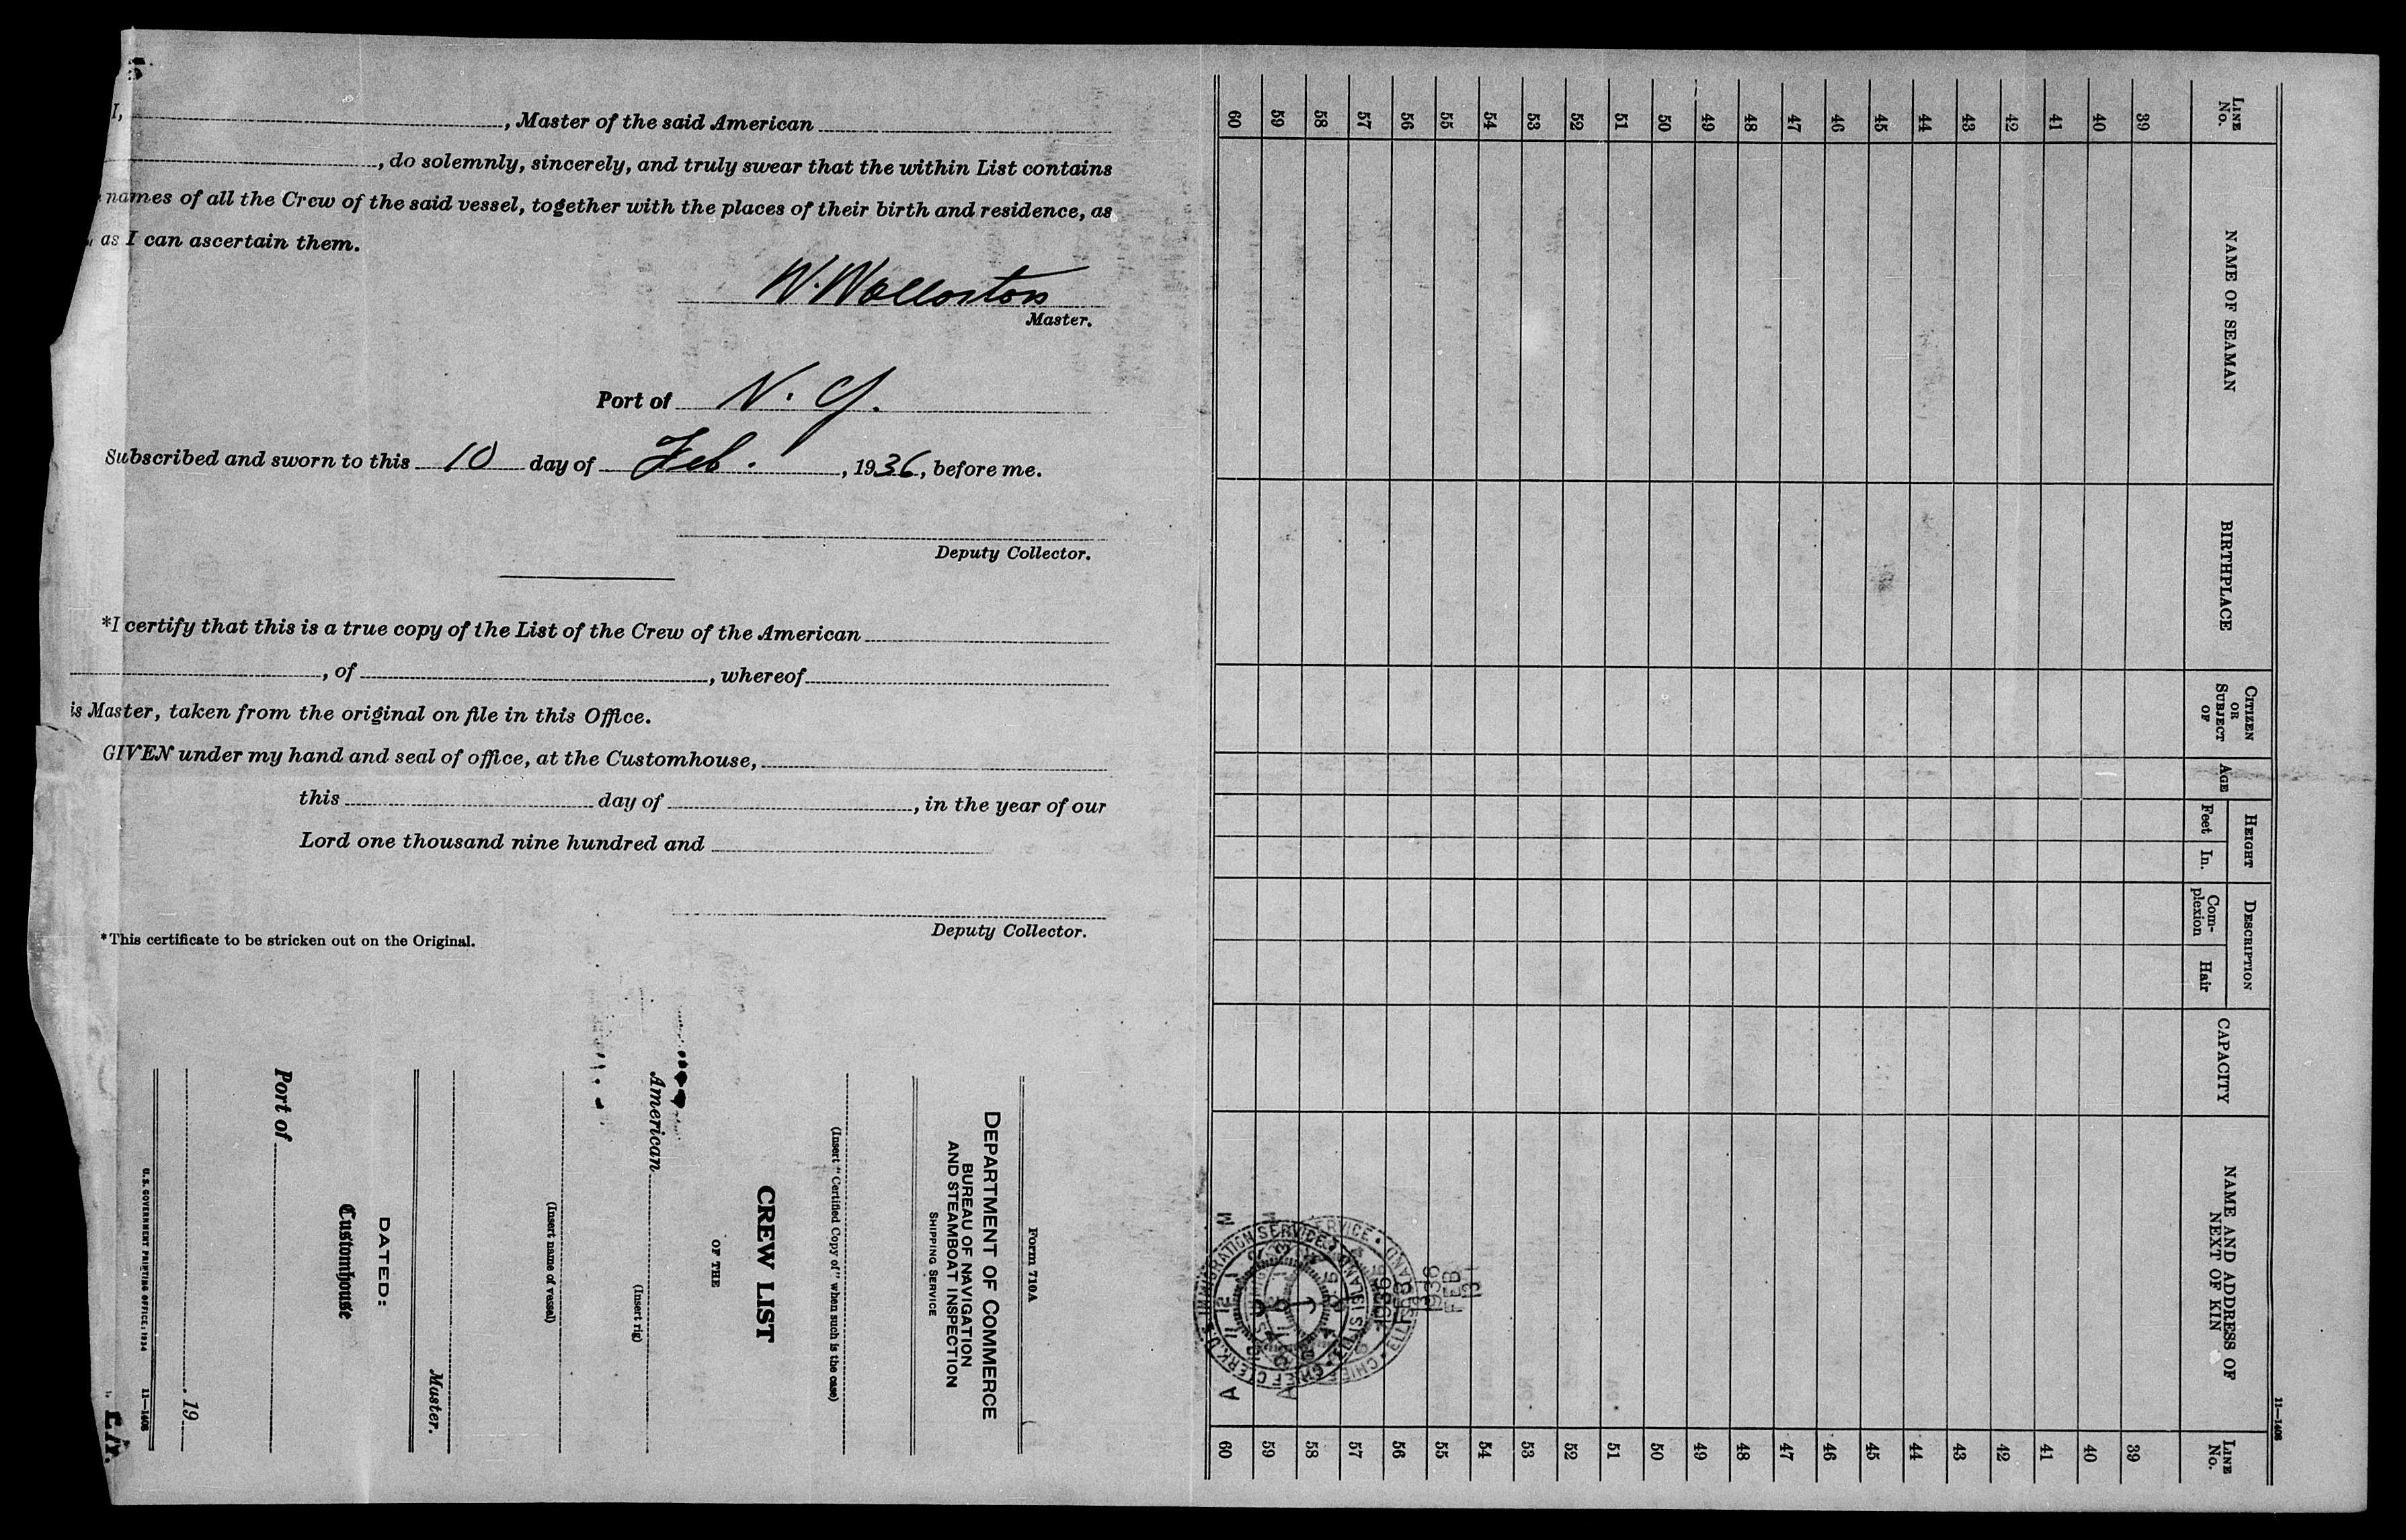 I, , Master of the said American
, do solemnly, sincerely, and truly swear that the within List contains
names of all the Crew of the said vessel, together with the places of their birth and residence, as
as I can ascertain them.
W. Wollaston
Master.
Port of N. Y.
Subscribed and sworn to this 10 day of Feb. , 1936, before me.
Deputy Collector.
*I certify that this is a true copy of the List of the Crew of the American
, of , whereof
is Master, taken from the original on file in this Office.
GIVEN under my hand and seal of office, at the Customhouse,
this day of , in the year of our
Lord one thousand nine hundred and
Deputy Collector.
*This certificate to be stricken out on the Original.
Form 710A
DEPARTMENT OF COMMERCE
BUREAU OF NAVIGATION
AND STEAMBOAT INSPECTION
SHIPPING SERVICE
(Insert "Certified Copy of" when such is the case)
CREW LIST
OF THE
American
(Insert rig)
(Insert name of vessel)
Master.
DATED:
Customhouse
Port of
, 19
U.S. GOVERNMENT PRINTING OFFICE: 1934 11—1408
11—1408
LINE No. NAME OF SEAMAN BIRTHPLACE CITIZEN OR SUBJECT OF AGE HEIGHT Feet In. DESCRIPTION Complexion Hair CAPACITY NAME AND ADDRESS OF NEXT OF KIN LINE No.
39 39
40 40
41 41
42 42
43 43
44 44
45 45
46 46
47 47
48 48
49 49
50 50
51 51
52 52
53 53
54 54
55 55
56 56
57 57
58 58
59 59
60 60
CHIEF CLERK, U.S. IMMIGRATION SERVICE • ELLIS ISLAND •
1936
FEB